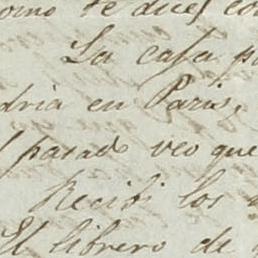 como te dije, co
La casa p
dria en Paris,
pasado veo que
Recibi los
El librero de